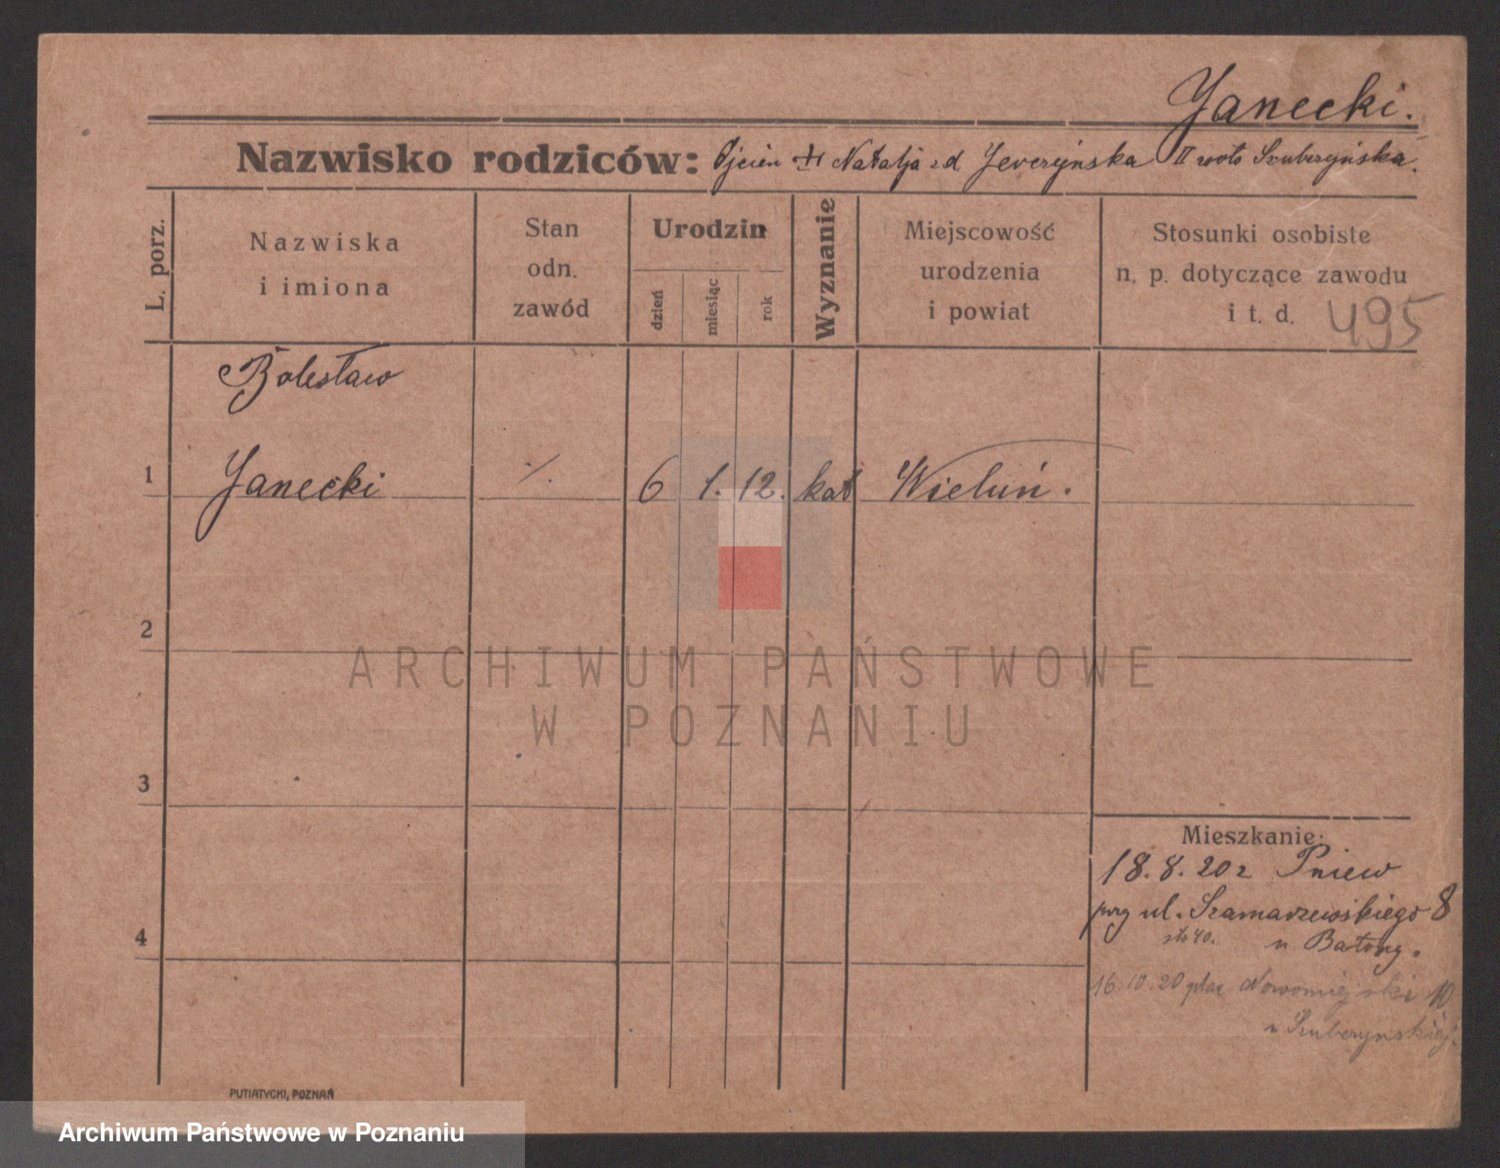 Janecki.
Nazwisko rodziców: Ojcien Natalja zd Jeverzyńska II voto Szuberzyńska.
L. porz.
Nazwiska i imiona
Stan odn. zawód
Urodzin
dzień
miesiąc
rok
Wyznanie
Miejscowość urodzenia i powiat
Stosunki osobiste n. p. dotyczące zawodu i t. d.
495
Bolesław
1 Janecki ·/. 6 1. 12. kat Wieluń.
2
3
4
Mieszkanie:
18. 8. 20 z Pniew
przy ul. Szamarzewskiego 8
u Batory.
16. 10. 20 plac Nowomiejski 10
u Szuberzyńskiej
PUTIATYCKI, POZNAŃ
ARCHIWUM PAŃSTWOWE
W POZNANIU
Archiwum Państwowe w Poznaniu